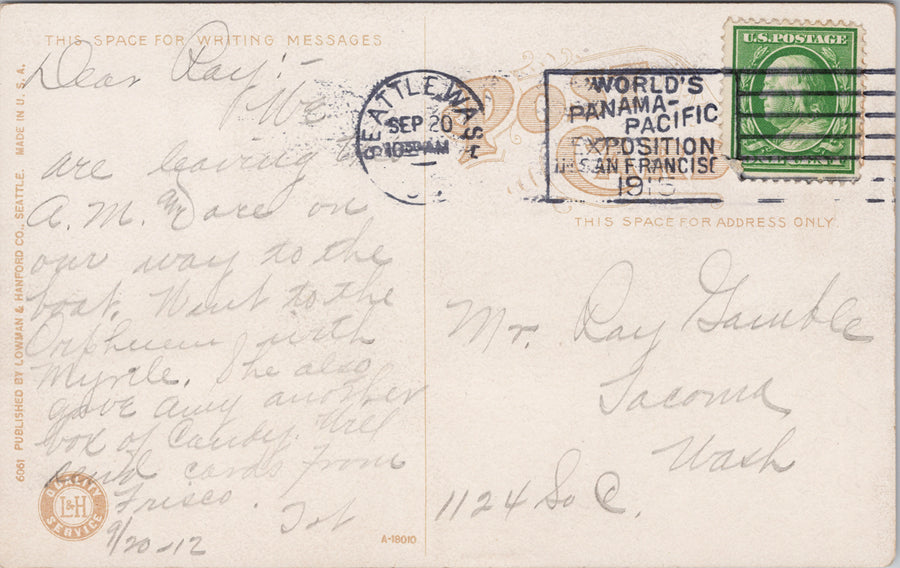 THIS SPACE FOR WRITING MESSAGES
Dear Ray:-
We
are leaving
A.M. and are on
our way to the
boat. Went to the
Orpheum with
Myrtle. She also
gave Amy another
box of Candy. Will
send cards from
Frisco.
9/20-12
6061 PUBLISHED BY LOWMAN & HANFORD CO., SEATTLE. MADE IN U. S. A.
QUALITY
L&H
SERVICE
A-18010
SEATTLE, WASH
SEP 20
10 30 AM
WORLD'S
PANAMA-
PACIFIC
EXPOSITION
IN SAN FRANCISC
1915
U.S. POSTAGE
POST
THIS SPACE FOR ADDRESS ONLY.
Mr. Ray Gamble
Tacoma
Wash
1124 So C.